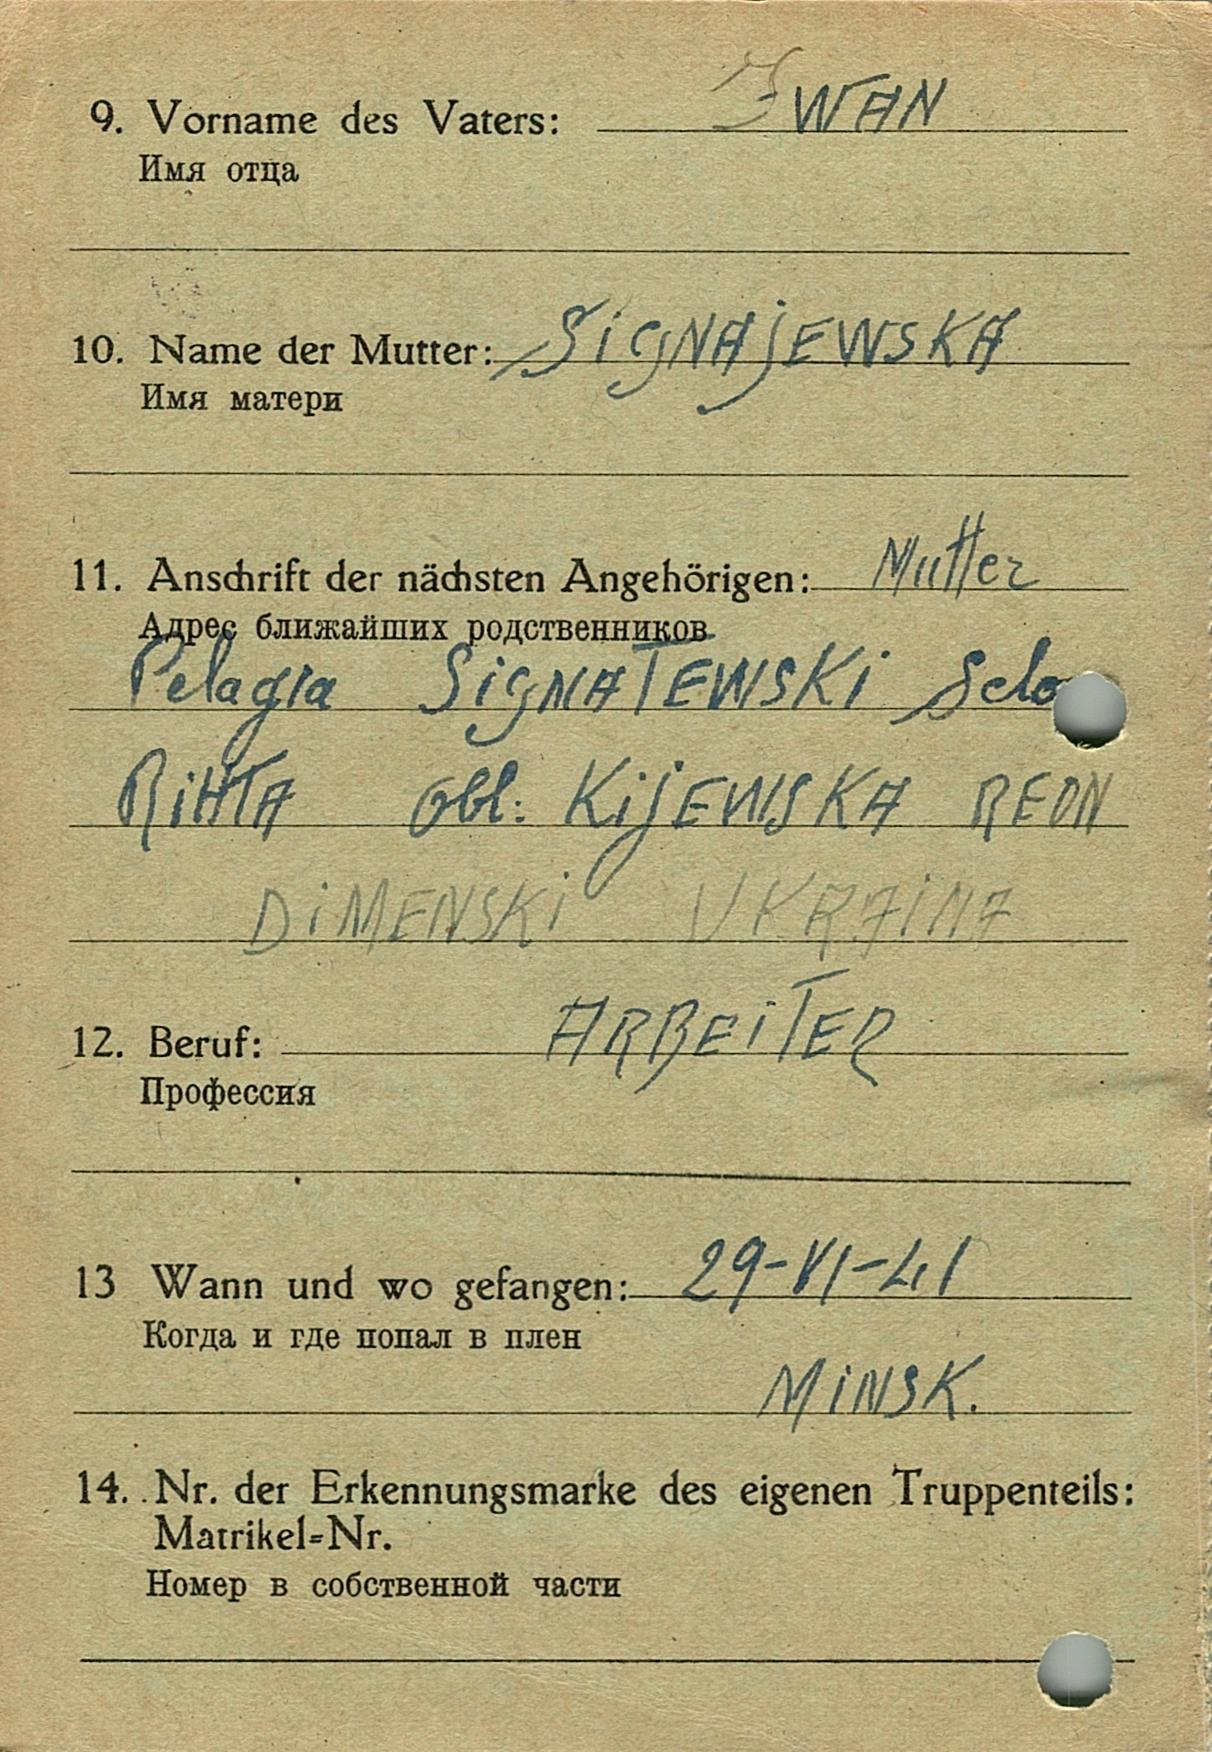 9. Vorname des Vaters: IWAN
Имя отца
10. Name der Mutter: SiGNAjEWSKA
Имя матери
11. Anschrift der nächsten Angehörigen: Mutter
Адрес ближайших родственников
Pelagia SiGNATEWSKi Selo
obl: KijEWSKA REON
DiMENSKi UKRAiNA
12. Beruf: ARBEiTER
Профессия
13 Wann und wo gefangen: 29-VI-41
Когда и где попал в плен
MiNSK.
14. Nr. der Erkennungsmarke des eigenen Truppenteils:
Matrikel=Nr.
Номер в собственной части